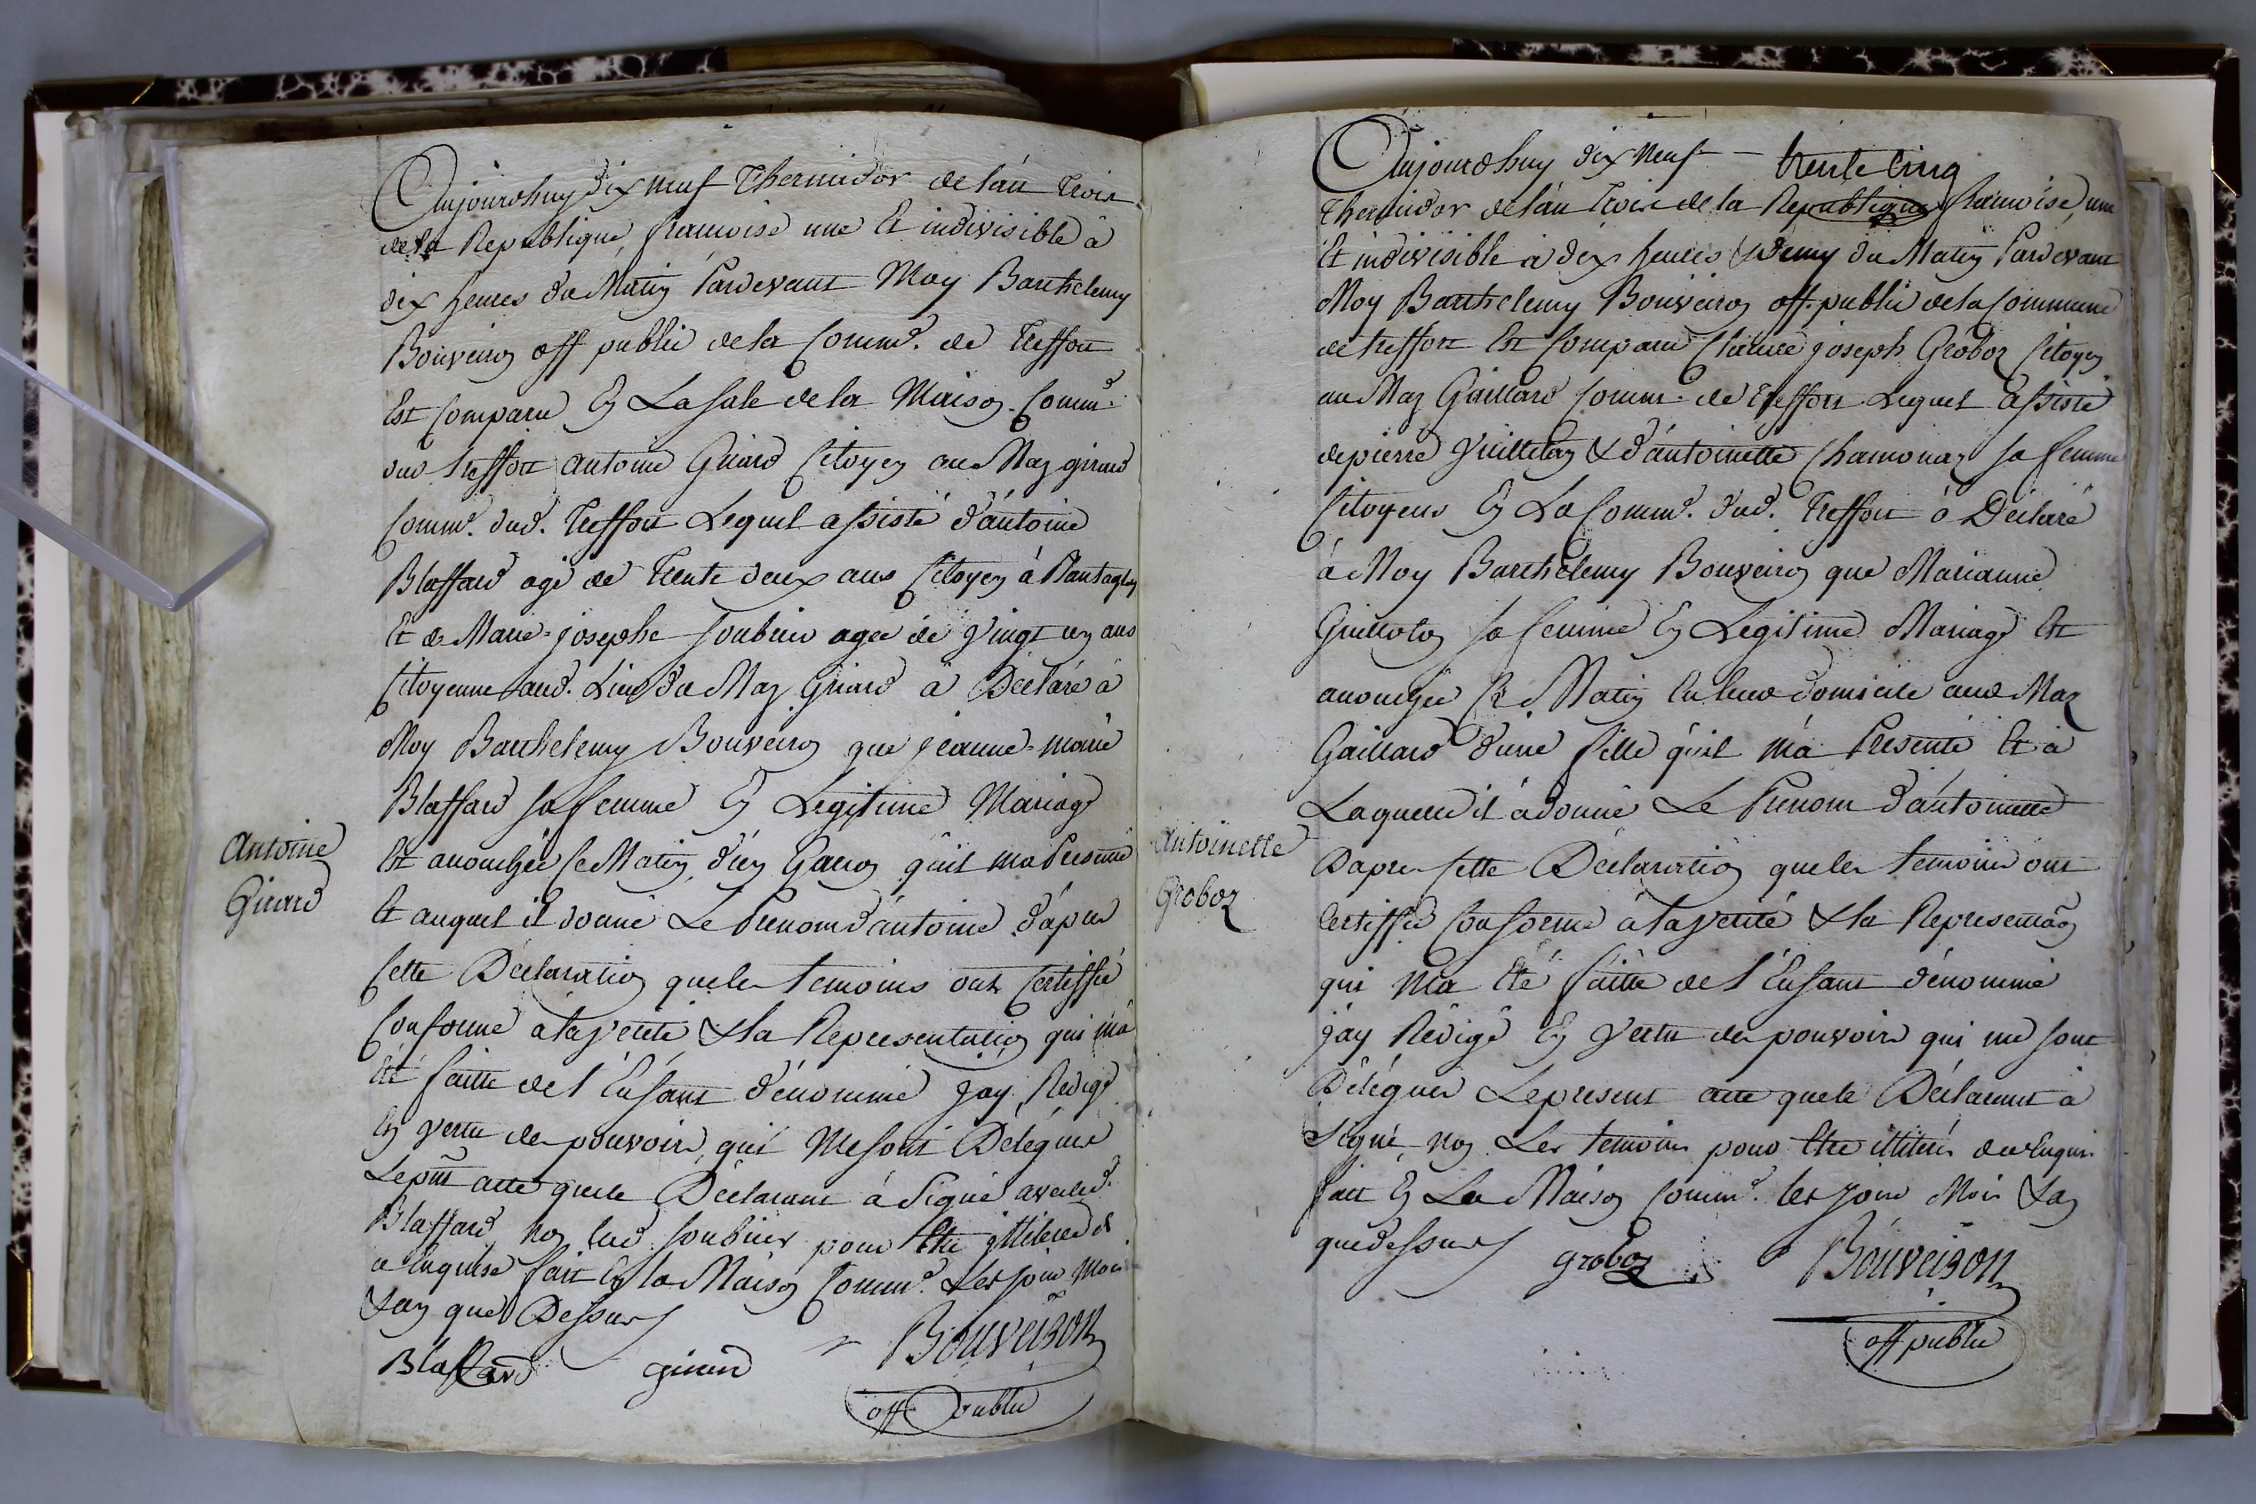 Aujourdhuy dix neuf Thermidor de l'án trois
de la Republique, francoise une Et indivisible à
dix heures du Matin Pardevant Moy Barthelemy
Bouveiron off public de la Comm.e de Treffort
Est Comparu En La Sale de la Maison Comm.e
dud treffort antoine Girard Citoyen au Maz girard
Comm.e dud. Treffort Lequel assisté d'ántoine
Blaffard agé de Trente deux ans Citoyen à
Et de Marie-josephe Soubrier agée de vingt un ans
Citoyenne aud. Lieu du Maz Girard à Déclaré à
Moy Barthelemy Bouveiron que jeanne-marie
Blaffard sa femme En Legitime Mariage
Est accouchée Ce Matin, d'un Garçon qu'il ma Presenté
Et auquel il donné Le Prenom d'ántoine d'ápres
Cette Déclaration que les temoins ont Certiffié
Conforme à la verité & la Representation qui m'á
été faitte de l'Enfant dénommé jáy Redigé
En vertu des pouvoirs, qui Me sont Délégués
Le pnt acte que le Déclarant à Signé avec led.
Blaffard non lad Soubrier pour être illiterée de
ce Enquise fait En la Maison Comm.e Les jour Mois
& an que Dessus
Blaffard girard Bouveiron
off Public
antoine
Girard
trente cinq
Aujourdhuy dix Neuf
Thermidor de l'án trois de la Republique francoise, une
Et indivisible à dix heures & demy du Matin Pardevant
Moy Barthelemy Bouveiron off. public de la Commune
de treffort Est Comparu Claude joseph Groboz Citoyen
au Maz Gaillard Comm.e de treffort Lequel assisté
de pierre Guilleton & d'ántoinette Chamonaz sa femme
Citoyens En La Comm.e dud. Treffort à Déclaré
à Moy Barthelemy Bouveiron que Marianne
Guilloton sa femme En Legitime Mariage Est
accouchée Ce Matin En leur domicile aud Maz
Gaillard d'une fille qu'il m'á Presenté Et à
Laquelle il à donné Le Prenom d'ántoinette
Dapres Cette Déclaration que les temoins ont
Certiffié Conforme à la verité & la Representãon
qui Ma Eté faitte de l'Enfant dénommé
jáy Rédigé En vertu des pouvoirs qui me sont
Délégués Le present acte que le Déclarant à
Signé, non Les temoins pour Etre illiterés de ce Enquis
fait En La Maison Comm.e les jour Mois & an
que dessus groboz Bouveiron
off public
antoinette
Groboz